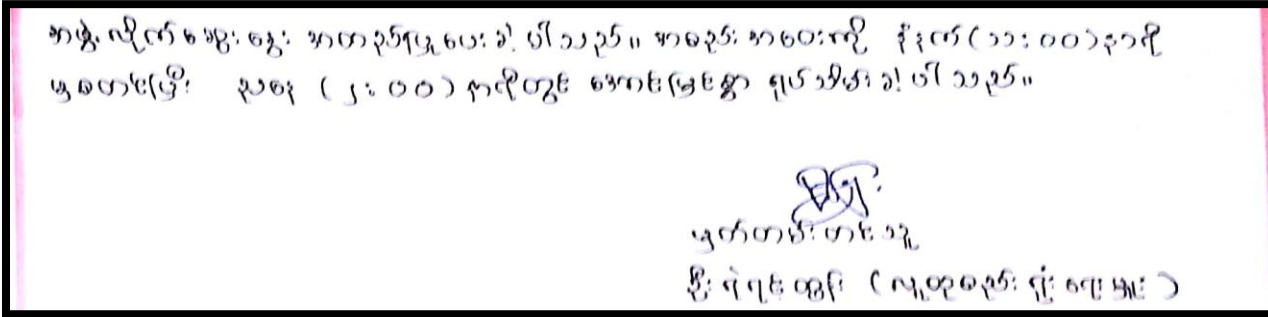 အဖွဲ့လိုက်ဆွေးနွေး အတည်ပြုပေးခဲ့ပါသည်။ အစည်းအဝေးကို နံနက်(၁၁:၀၀)နာရီ
မှစတင်ပြီး ညနေ (၂:၀၀)နာရီတွင် အောင်မြင်စွာ ရုပ်သိမ်းခဲ့ပါသည်။
မှတ်တမ်းတင်သူ
ဦးရဲရင့်ထွန်း (လူထုစည်းရုံးရေးမှူး)